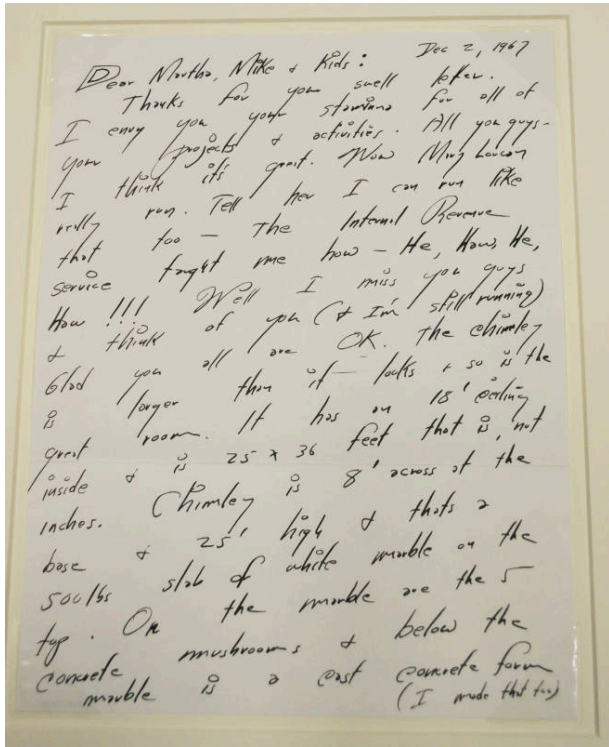 Dec 2, 1967
Dear Martha, Mike & Kids:
Thanks for your swell letter.
I envy you your stamina for all of
your projects & activities. All you guys -
I think it's great. Wow Mary Loucan
really run. Tell her I can run like
that too — The Internal Revenue
Service taught me how — He, Haw, He,
Haw !!! Well I miss you guys
& think of you (& I'm still running)
Glad you all are OK. The chimley
is larger than it looks & so is the
great room. It has an 18' ceiling
inside & is 25 x 36 feet that is, not
inches. Chimley is 8' across at the
base & 25' high & thats a
500lbs slab of white marble on the
top. On the marble are the 5
concrete mushrooms & below the
marble is a cast concrete form
(I made that too)